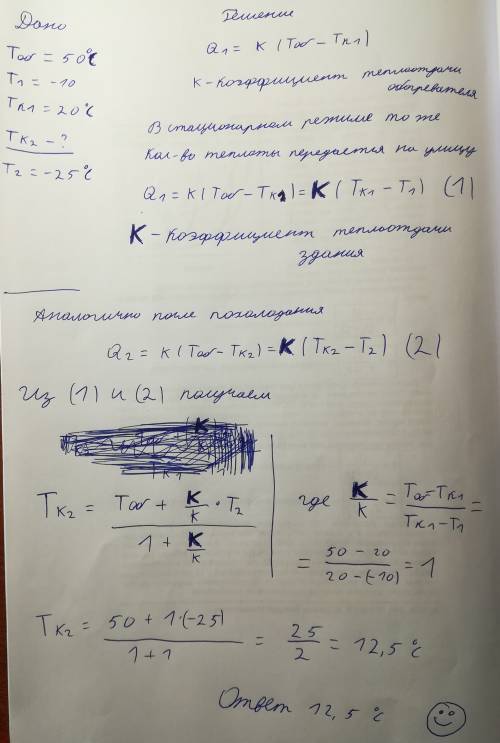 Дано
Tоб = 50°C
T1 = -10
Tк1 = 20°C
Tк2 - ?
T2 = -25°C
Решение
Q1 = к (Tоб - Tк1)
к - коэффициент теплоотдачи
обогревателя
В стационарном режиме то же
кол-во теплоты передастся на улицу
Q1 = к (Tоб - Tк1) = К (Tк1 - T1) (1)
К - коэффициент теплоотдачи
здания
Аналогично после похолодания
Q2 = к (Tоб - Tк2) = К (Tк2 - T2) (2)
Из (1) и (2) получаем
Tк2 = (Tоб + К/к · T2) / (1 + К/к)
где К/к = (Tоб - Tк1) / (Tк1 - T1) =
= (50 - 20) / (20 - (-10)) = 1
Tк2 = (50 + 1·(-25)) / (1 + 1) = 25/2 = 12,5 °C
Ответ 12,5 °C